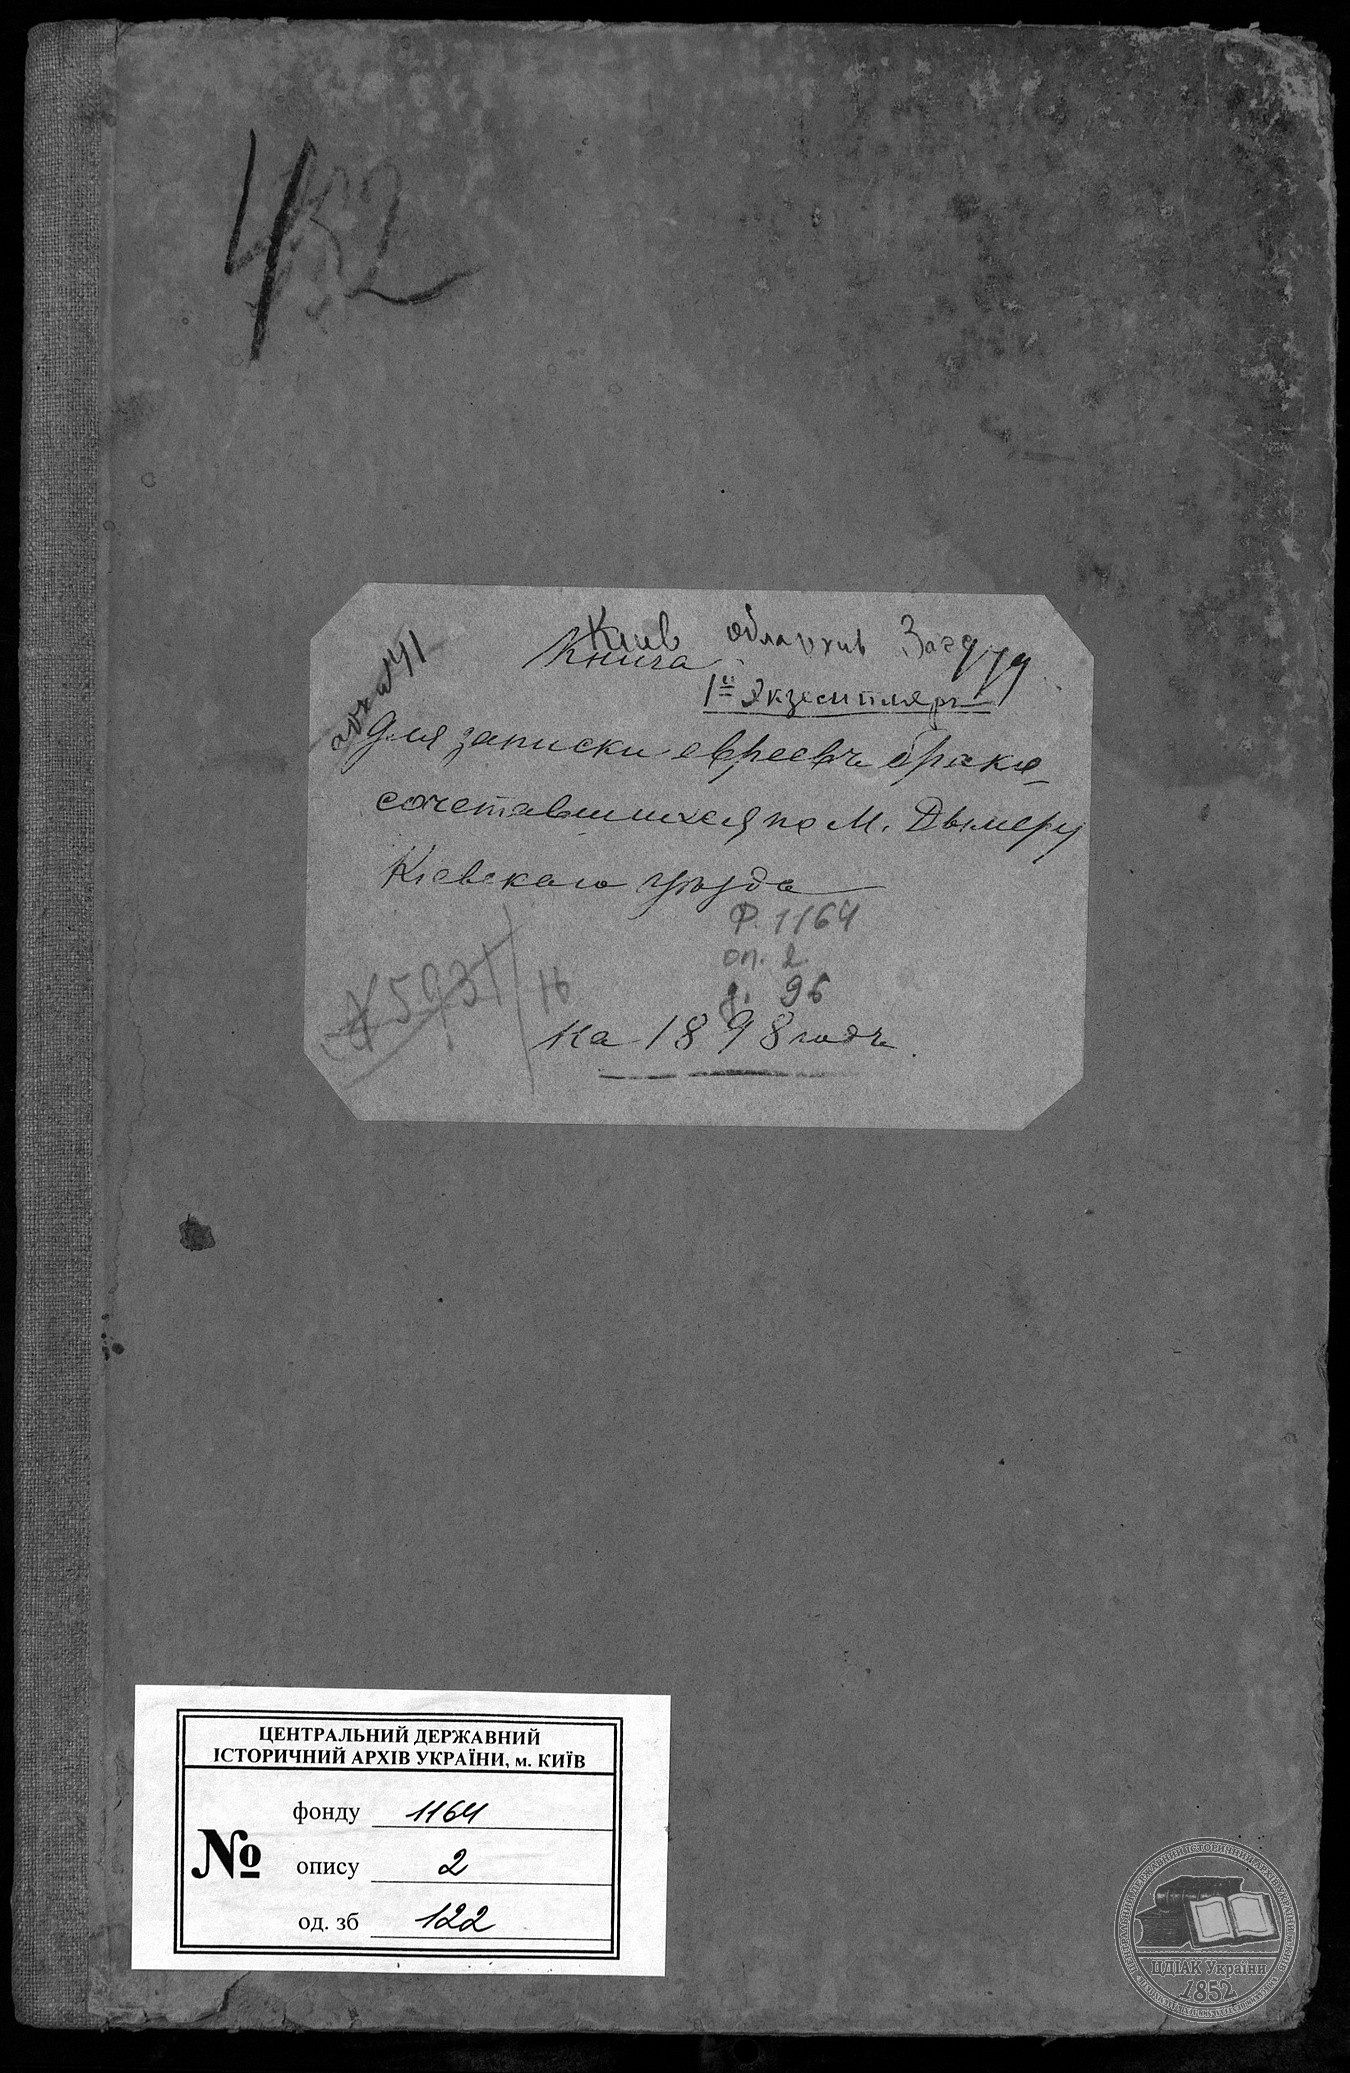 432
Киев облархив
Книга
1й Экземпляръ
для записки евреевъ брако-
сочетавшихся по м. Дымеру
Кіевскаго уѣзда
Ф. 1164
оп. 2.
д. 96
№ 5931/16
на 1898 годъ
ЦЕНТРАЛЬНИЙ ДЕРЖАВНИЙ
ІСТОРИЧНИЙ АРХІВ УКРАЇНИ, м. КИЇВ
№
фонду 1164
опису 2
од. зб 122
ЦДІАК України
1852